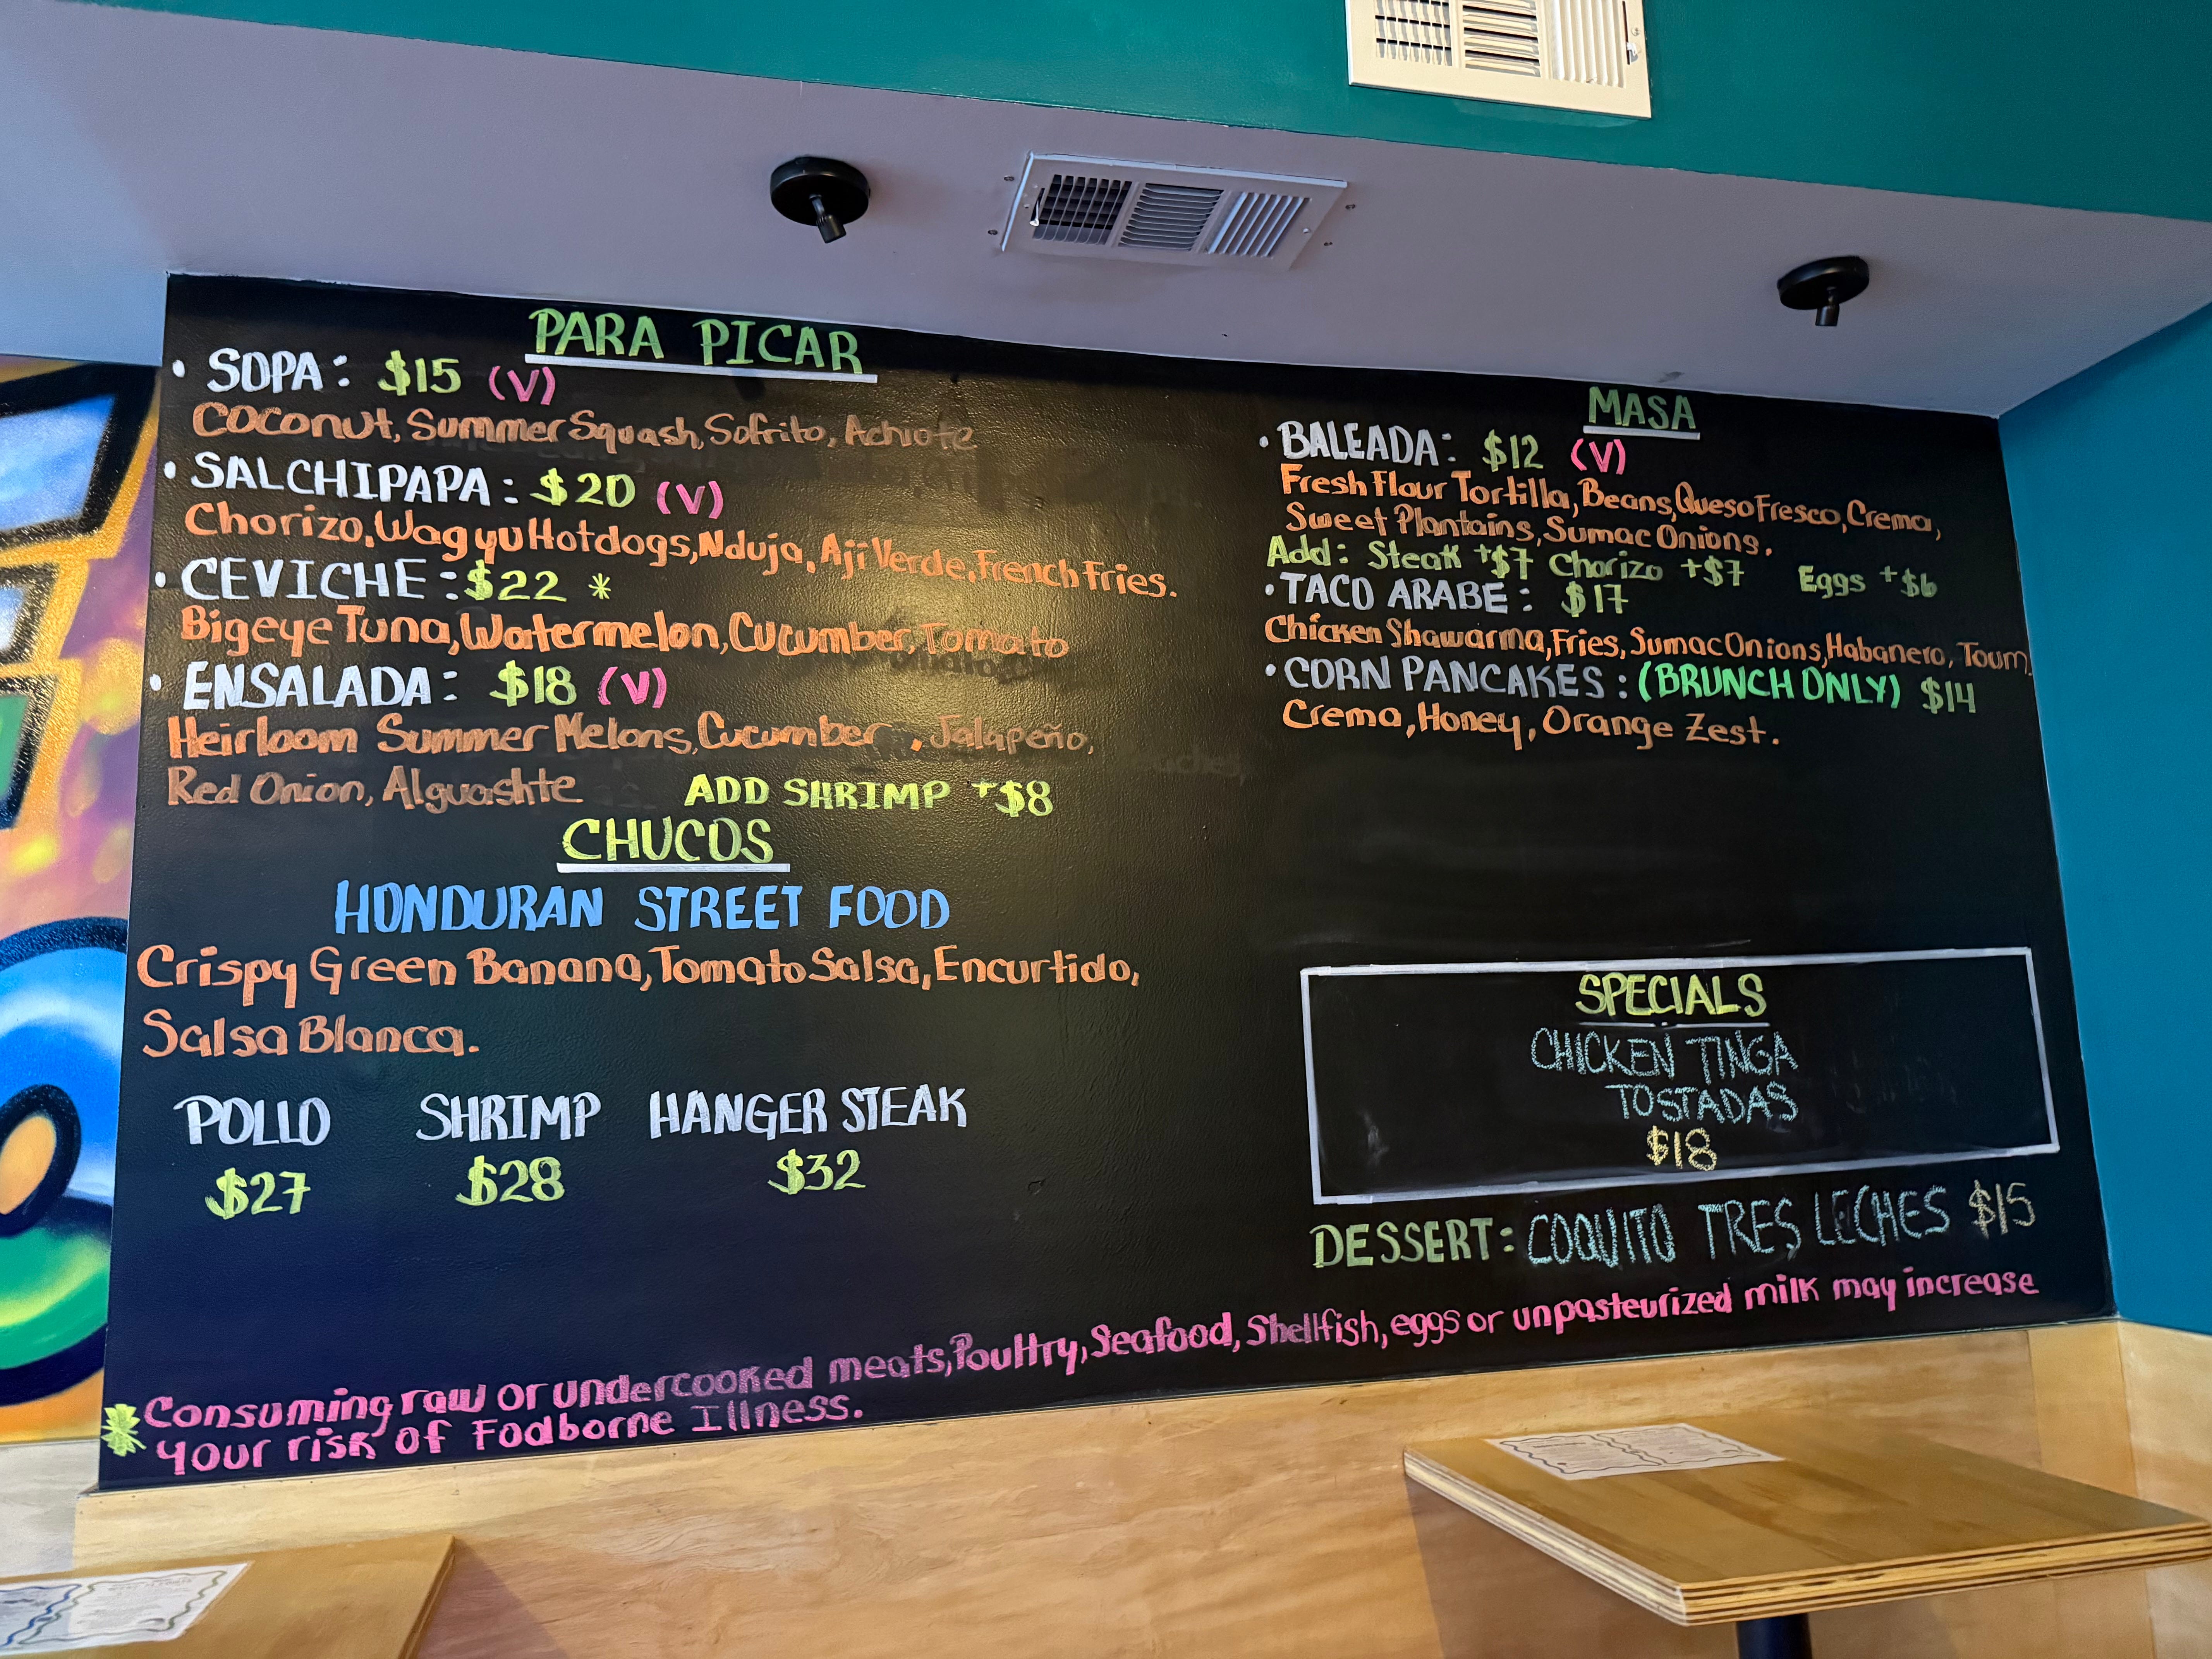 PARA PICAR
• SOPA: $15 (V)
Coconut, Summer Squash, Sofrito, Achiote
• SALCHIPAPA: $20 (V)
Chorizo, Wagyu Hotdogs, Nduja, Aji Verde, French Fries.
• CEVICHE: $22 *
Bigeye Tuna, Watermelon, Cucumber, Tomato
• ENSALADA: $18 (V)
Heirloom Summer Melons, Cucumber, Jalapeño,
Red Onion, Alguashte ADD SHRIMP +$8
CHUCOS
HONDURAN STREET FOOD
Crispy Green Banana, Tomato Salsa, Encurtido,
Salsa Blanca.
POLLO SHRIMP HANGER STEAK
$27 $28 $32
MASA
• BALEADA: $12 (V)
Fresh Flour Tortilla, Beans, Queso Fresco, Crema,
Sweet Plantains, Sumac Onions.
Add: Steak +$7 Chorizo +$7 Eggs +$6
• TACO ARABE: $17
Chicken Shawarma, Fries, Sumac Onions, Habanero, Toum.
• CORN PANCAKES: (BRUNCH ONLY) $14
Crema, Honey, Orange Zest.
SPECIALS
CHICKEN TINGA
TOSTADAS
$18
DESSERT: COQUITO TRES LECHES $15
* Consuming raw or undercooked meats, Poultry, Seafood, Shellfish, eggs or unpasteurized milk may increase
your risk of Fodborne Illness.